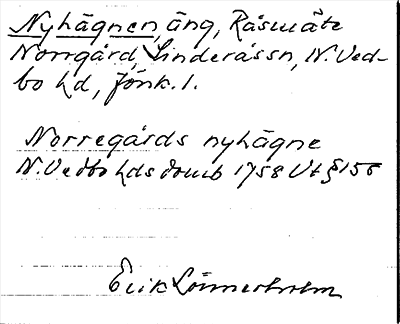 Nyhägnen, äng, Räsmäte
Norrgård, Linderåssn, N. Ved-
bo hd, Jönk. l.
Norregårds nyhägne
N. Vedbo hds domb 1758 Vt § 156
Erik Lönnerholm